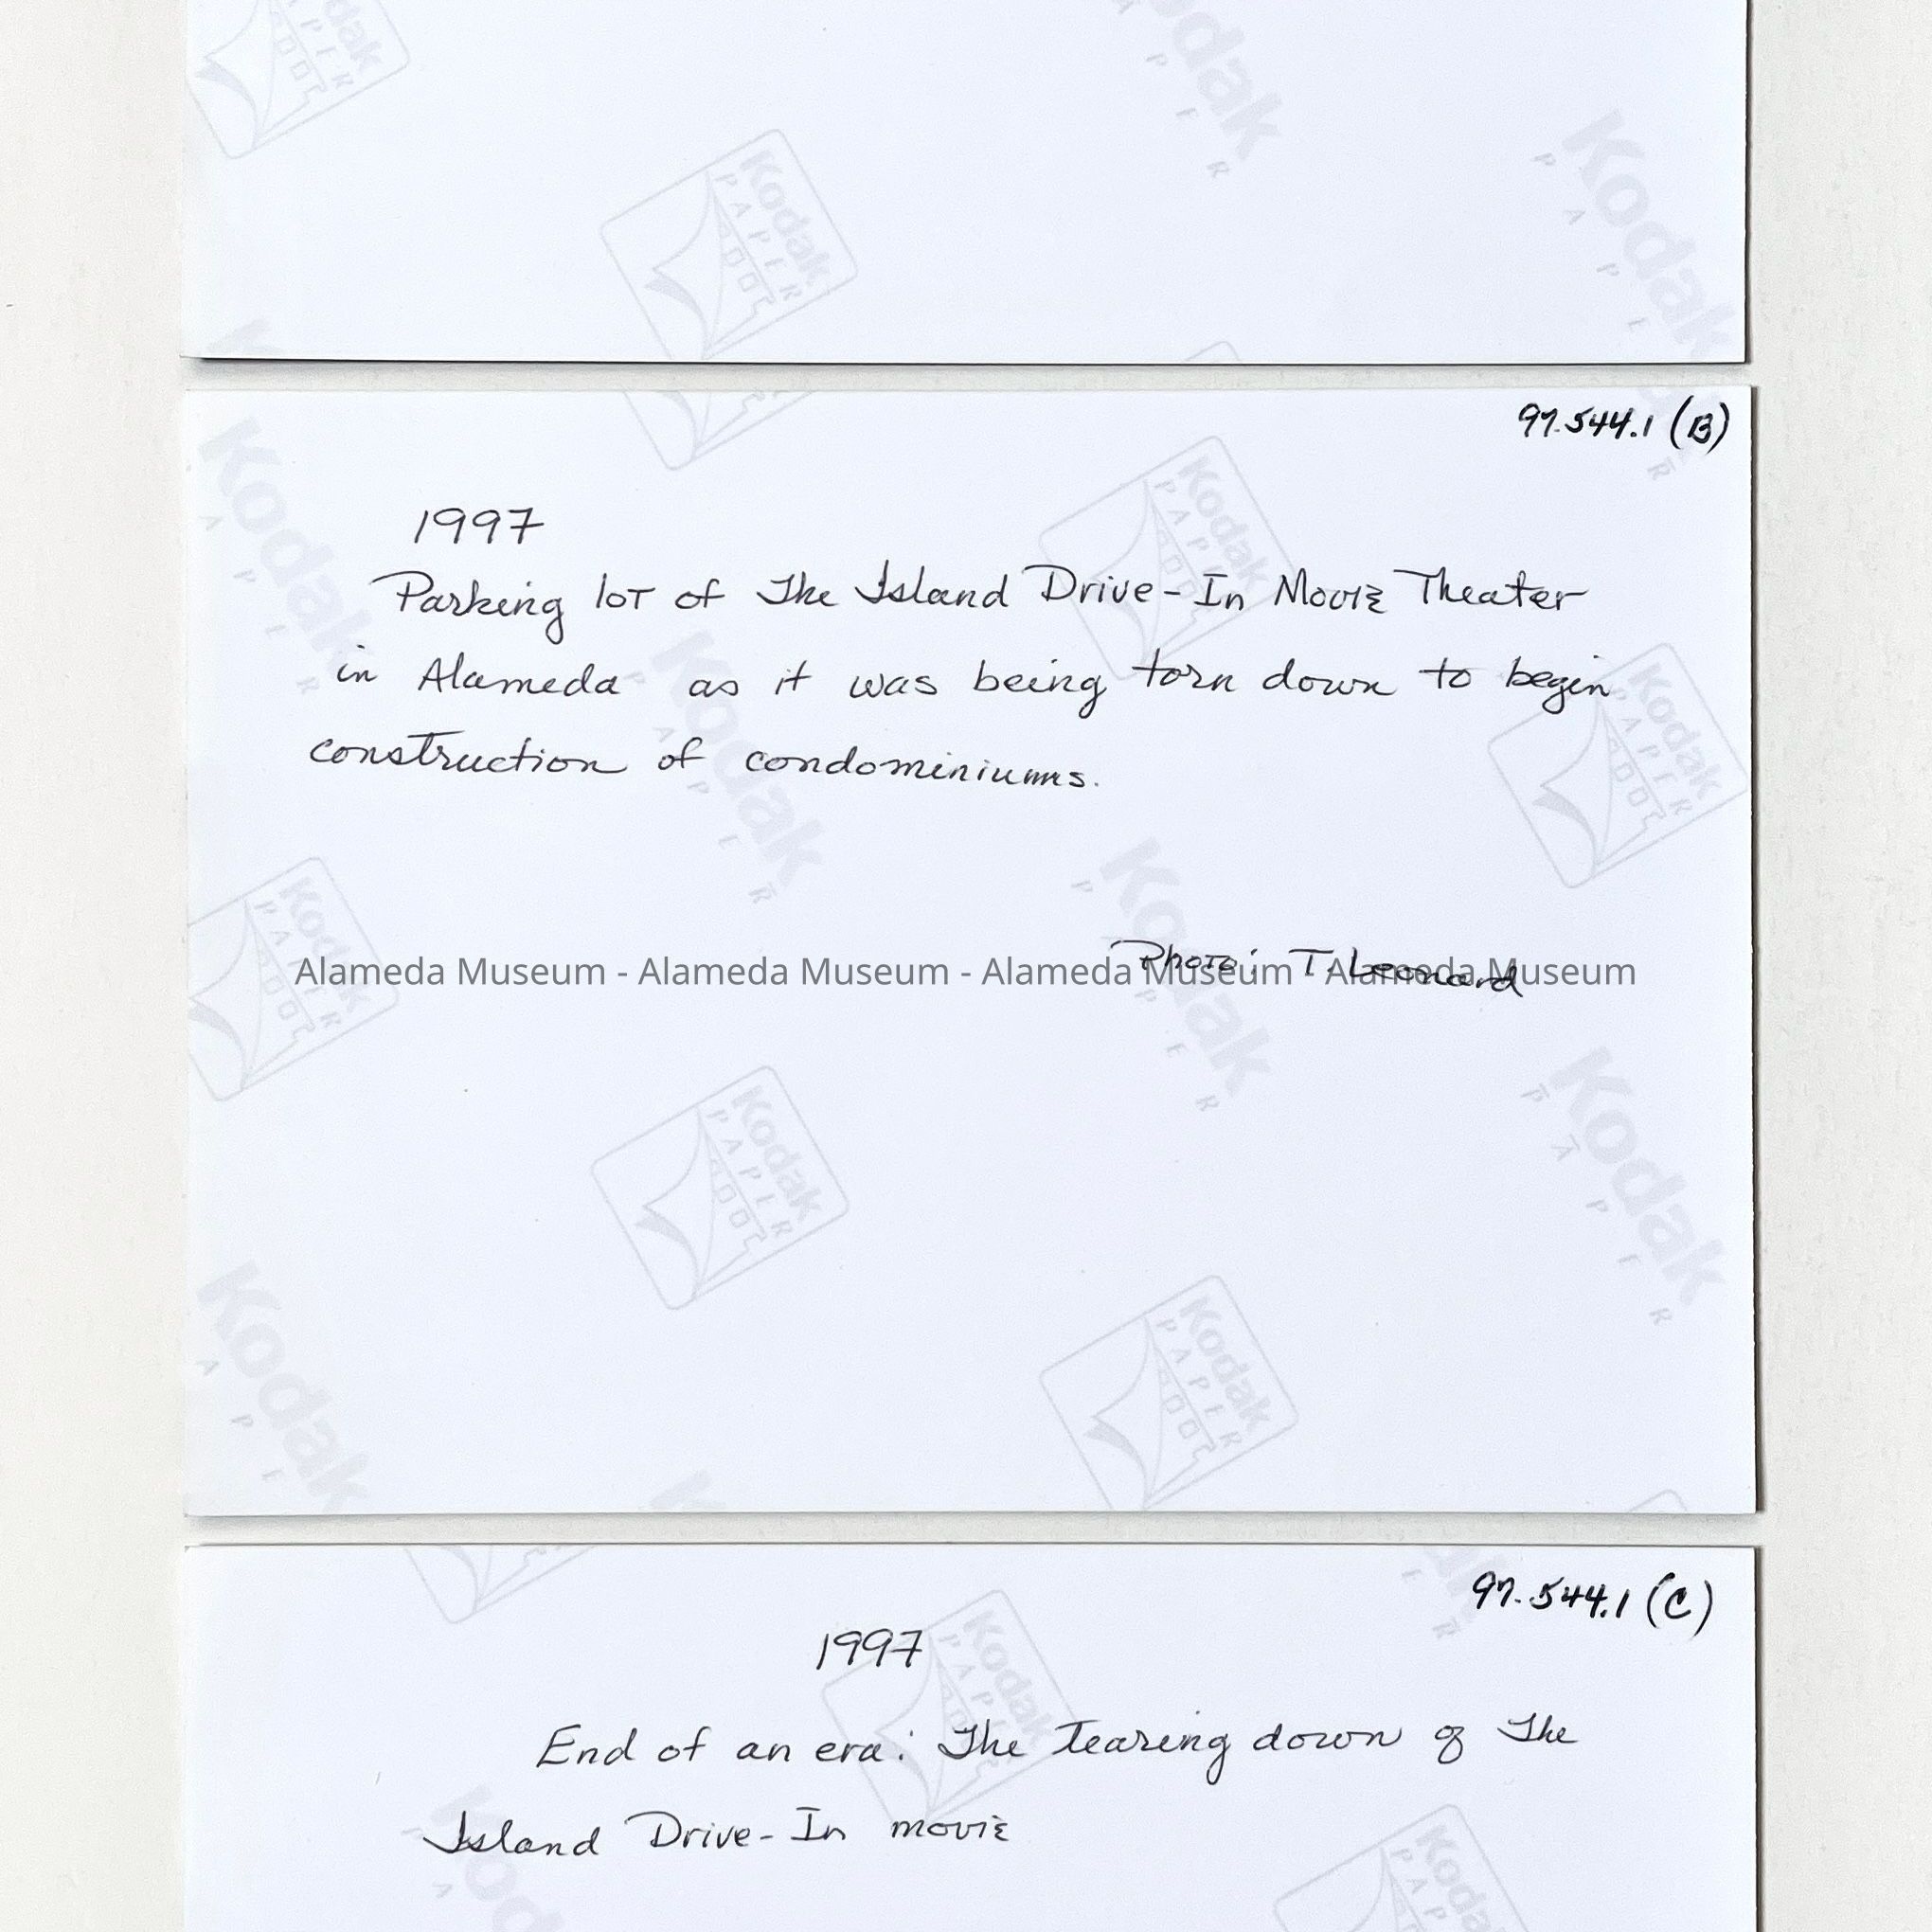 97.544.1 (B)
1997
Parking lot of The Island Drive-In Movie Theater
in Alameda as it was being torn down to begin
construction of condominiums.
Photo: T. Leonard
Alameda Museum - Alameda Museum - Alameda Museum - Alameda Museum
97.544.1 (C)
1997
End of an era: The tearing down of The
Island Drive-In movie
Kodak
PAPER